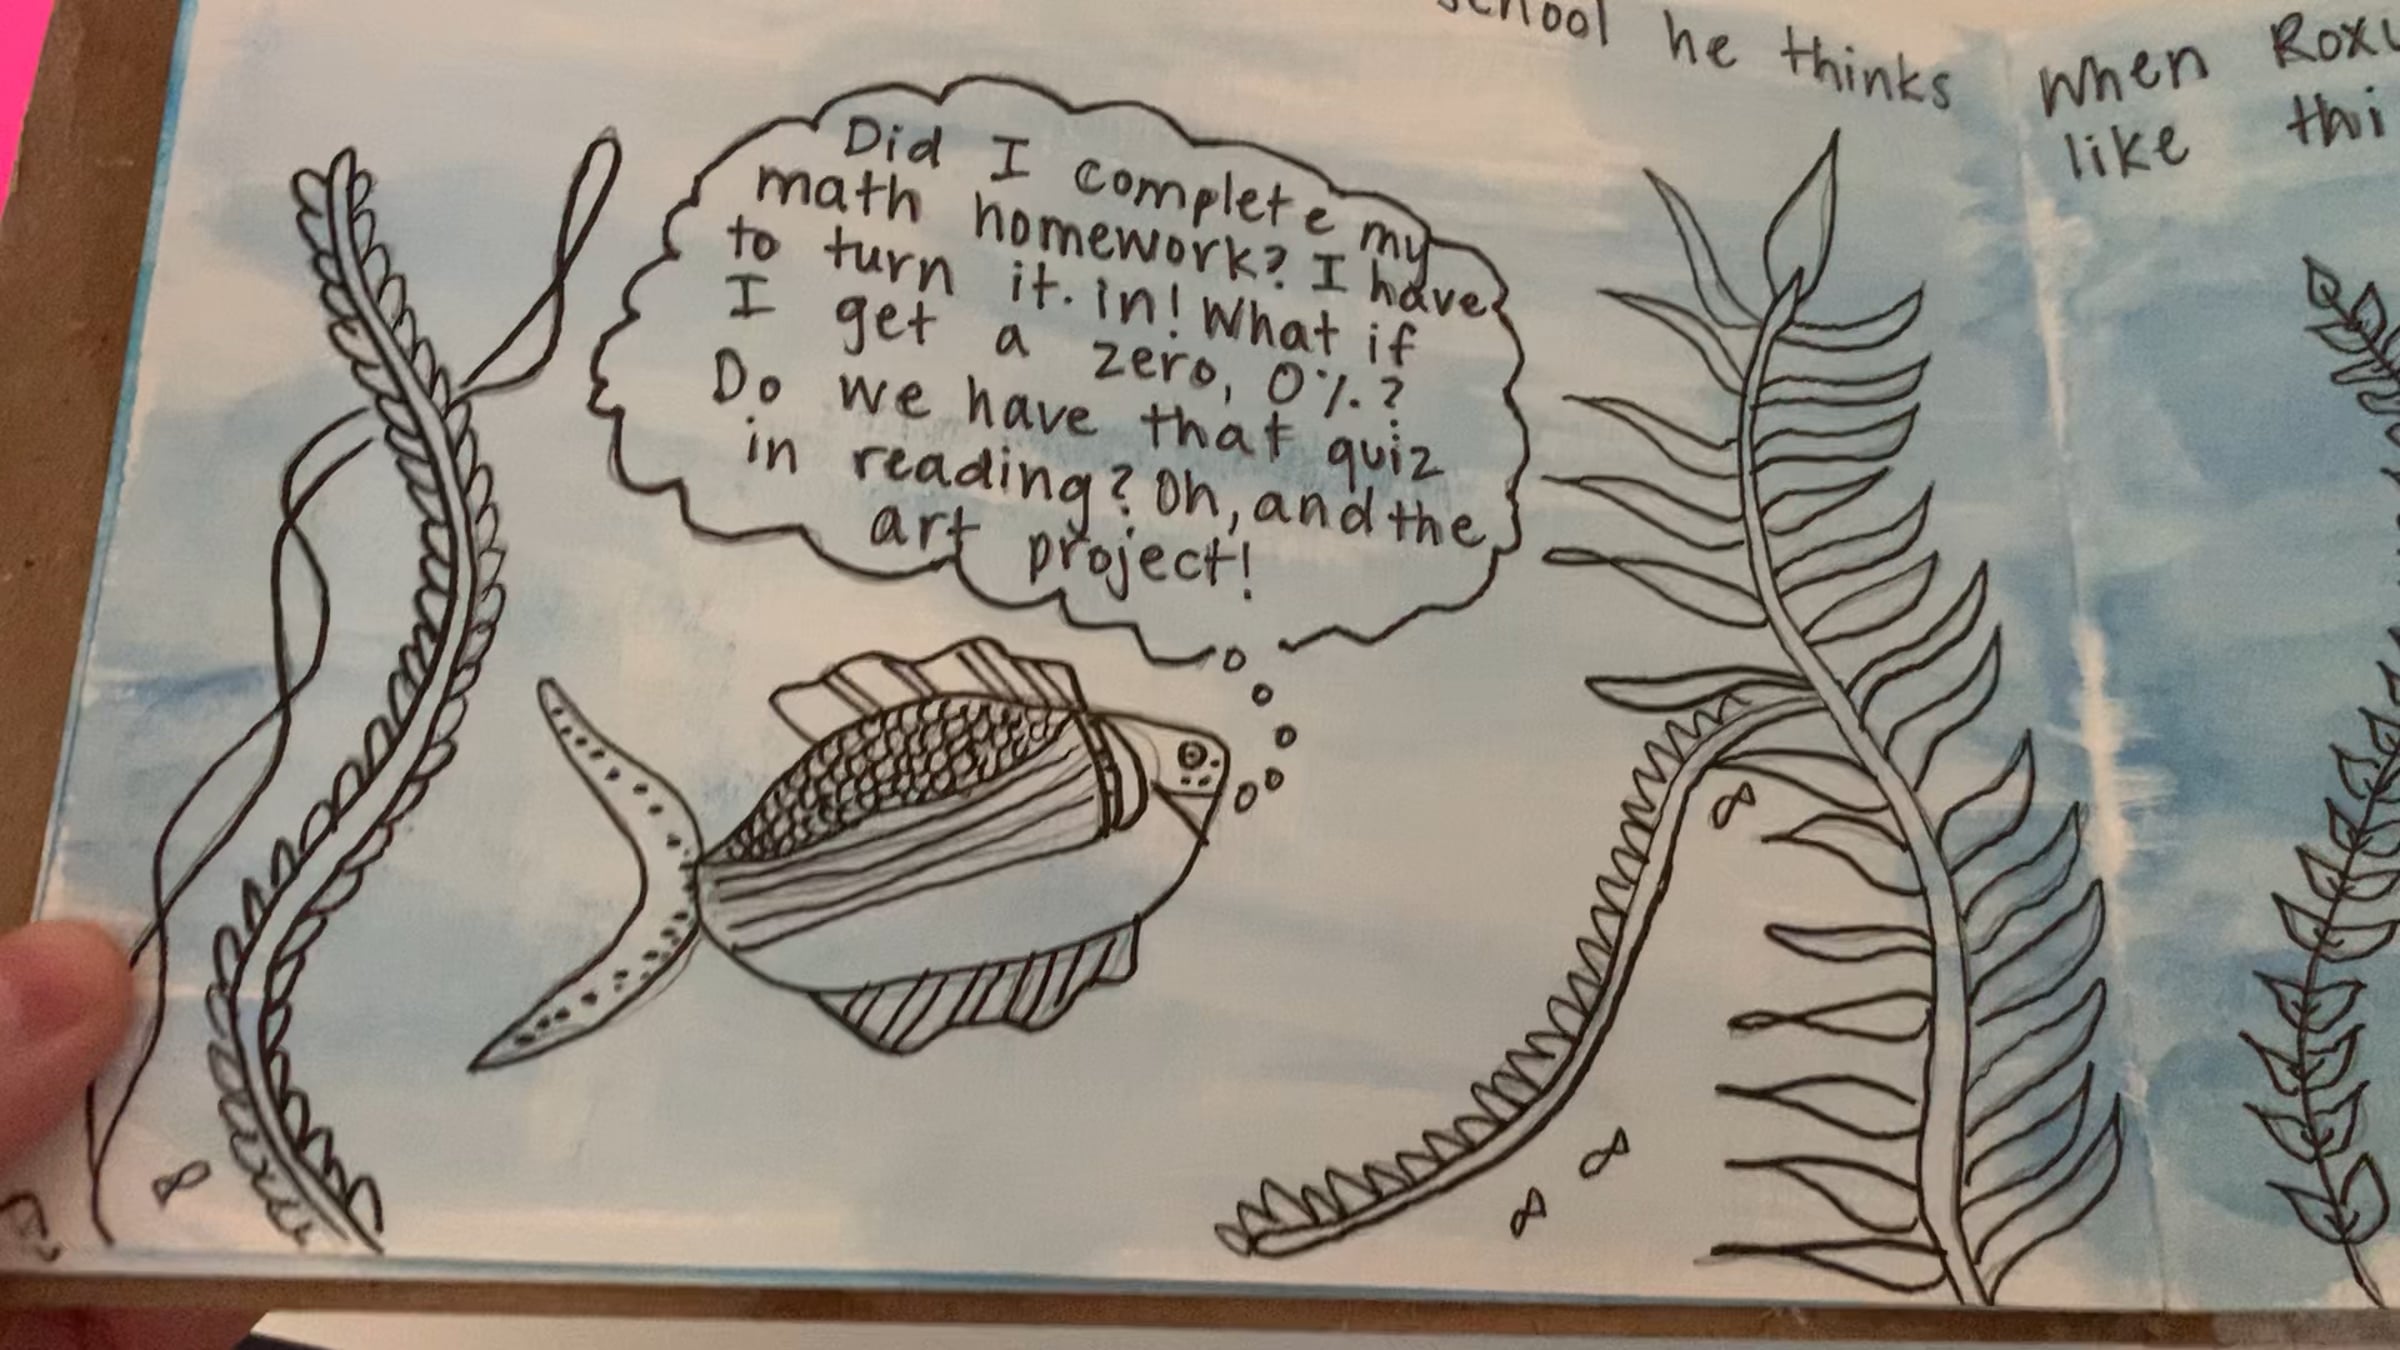 school he thinks
Did I complete my
math homework? I have
to turn it. in! What if
I get a zero, 0%?
Do we have that quiz
in reading? Oh, and the
art project!
When
like